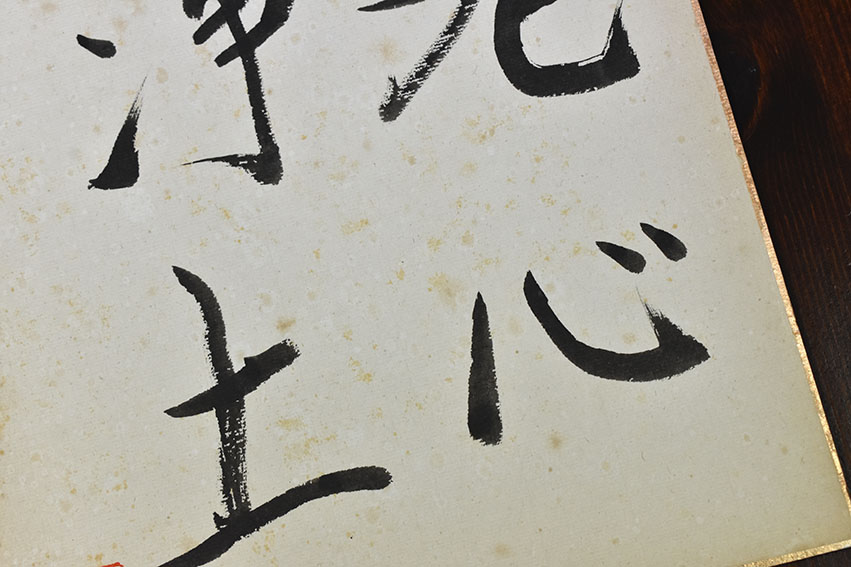 心
浄土